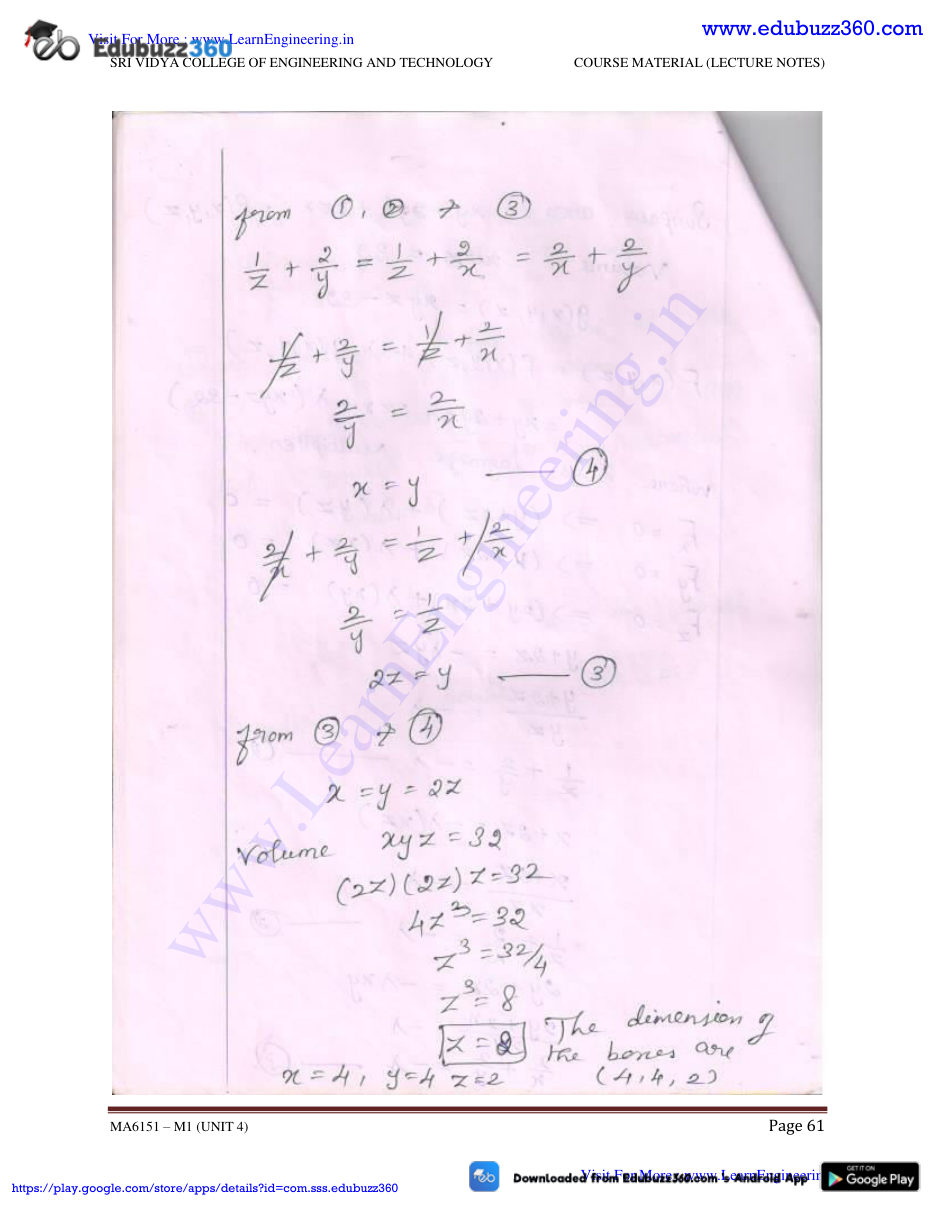 www.edubuzz360.com
Visit For More : www.LearnEngineering.in
Edubuzz360
SRI VIDYA COLLEGE OF ENGINEERING AND TECHNOLOGY COURSE MATERIAL (LECTURE NOTES)
from ①, ② & ③
1/z + 2/y = 1/z + 2/x = 2/x + 2/y
1/z + 2/y = 1/z + 2/x
2/y = 2/x
x = y —— ④
2/x + 2/y = 1/z + 2/x
2/y = 1/z
2z = y —— ③
from ③ & ④
x = y = 2z
Volume xyz = 32
(2z)(2z)z = 32
4z³ = 32
z³ = 32/4
z³ = 8
z = 2 The dimension of
the boxes are
x = 4, y=4 z=2 (4,4,2)
www.LearnEngineering.in
MA6151 – M1 (UNIT 4) Page 61
https://play.google.com/store/apps/details?id=com.sss.edubuzz360
Downloaded from EduBuzz360.com's Android App
Visit For More : www.LearnEngineerin
GET IT ON
Google Play